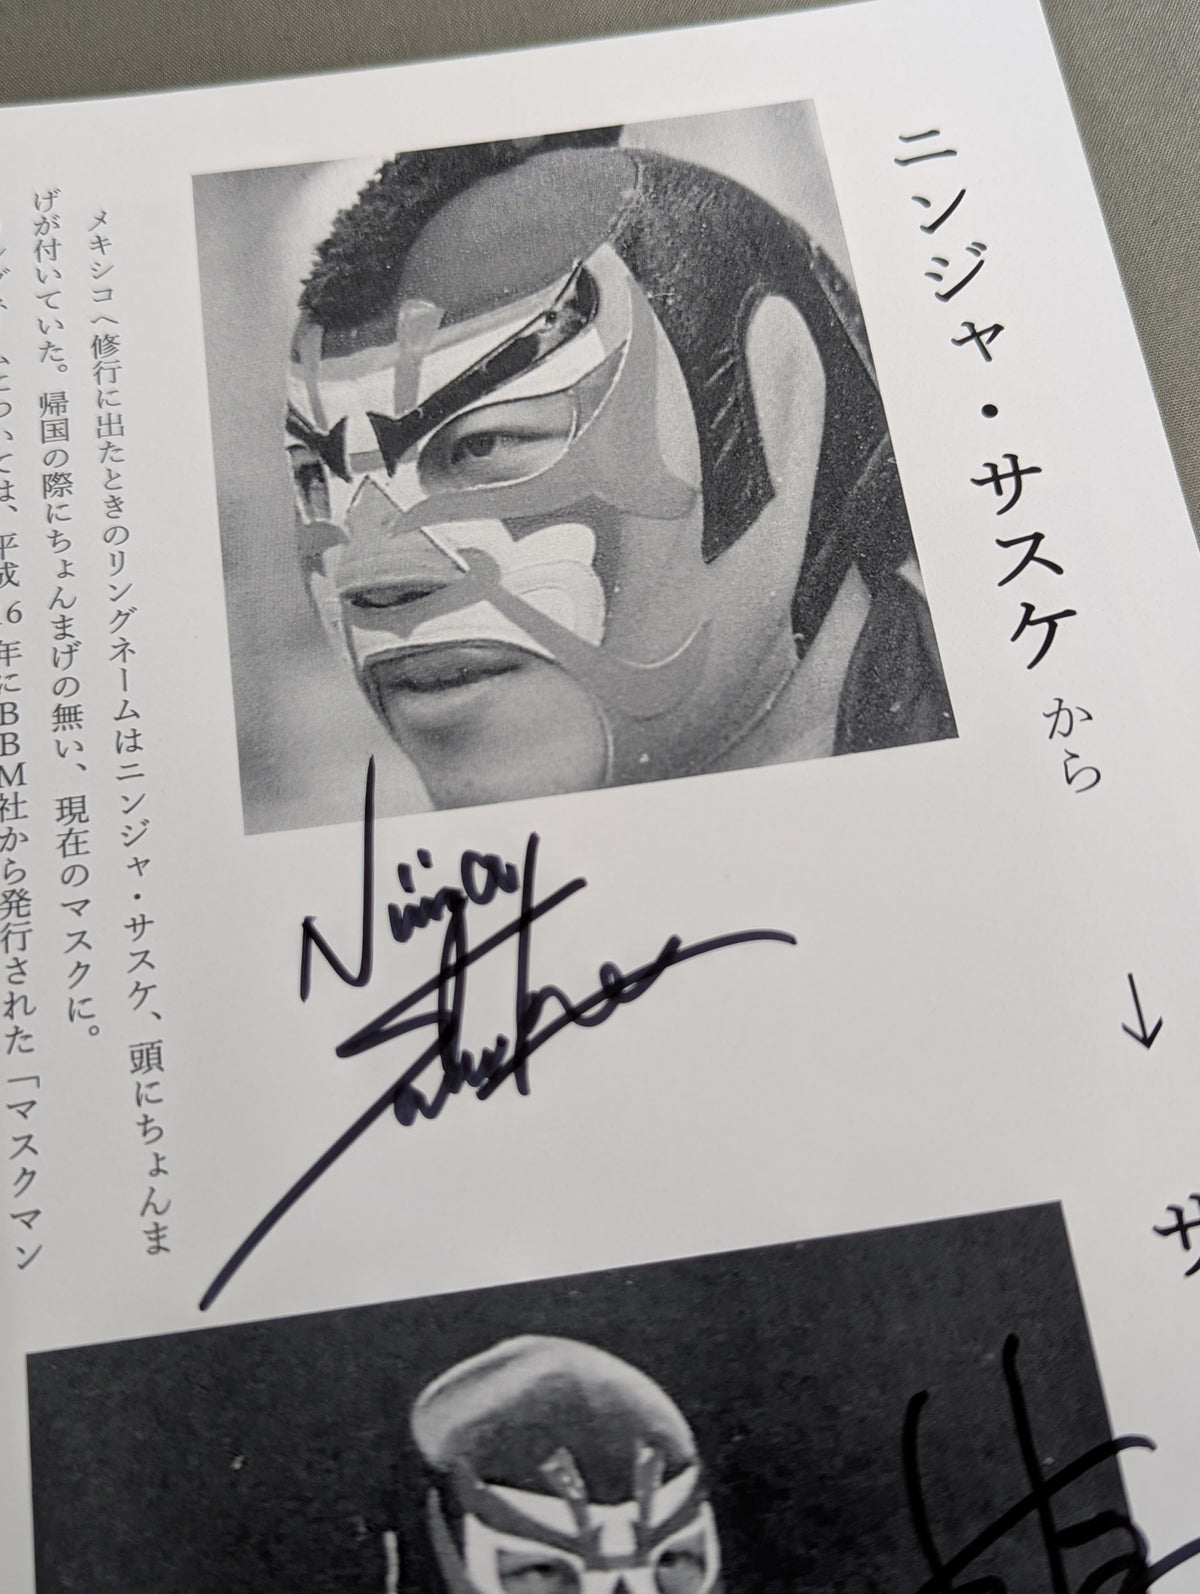 ニンジャ・サスケから
↓
サ
メキシコへ修行に出たときのリングネームはニンジャ・サスケ、頭にちょんま
げが付いていた。帰国の際にちょんまげの無い、現在のマスクに。
ては、平成16年にBBM社から発行された「マスクマン
Ninja
Sasuke